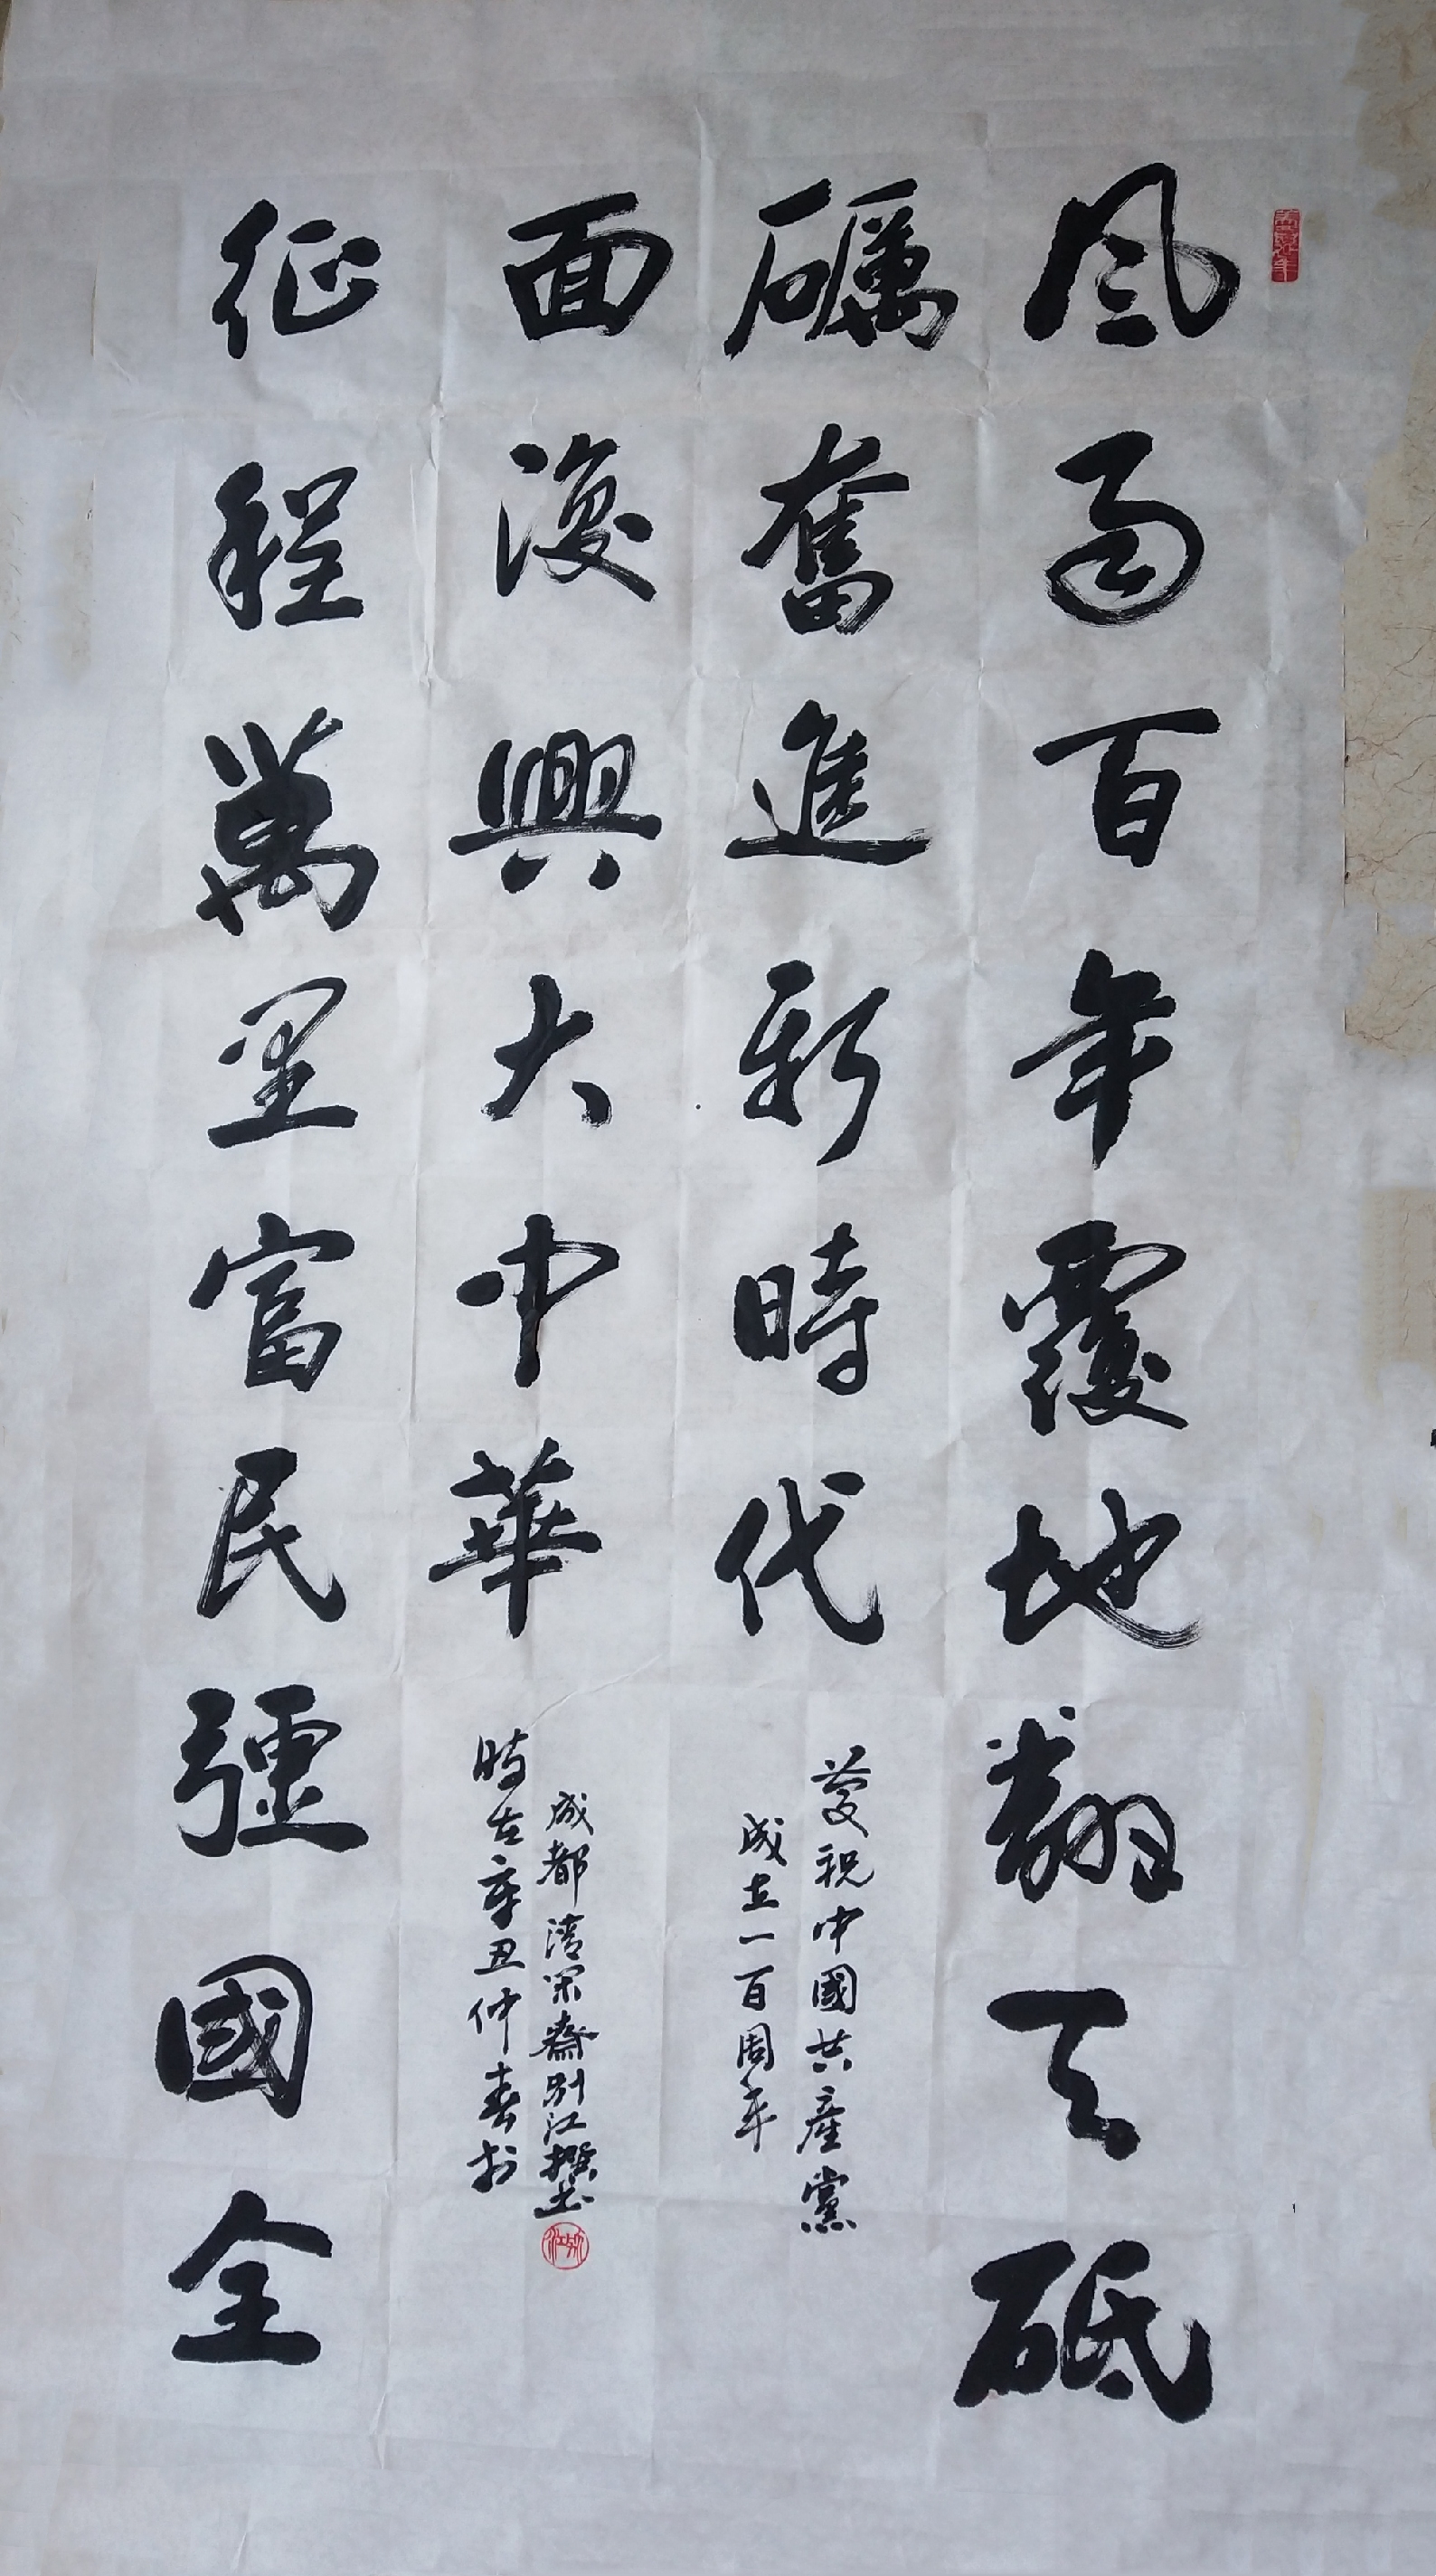 風雨百年覆地翻天砥
礪奮進新時代
慶祝中國共產黨
成立一百周年
征程萬里富民彊國全
面復興大中華
時在辛丑仲春於
成都清閑齋別江撰書